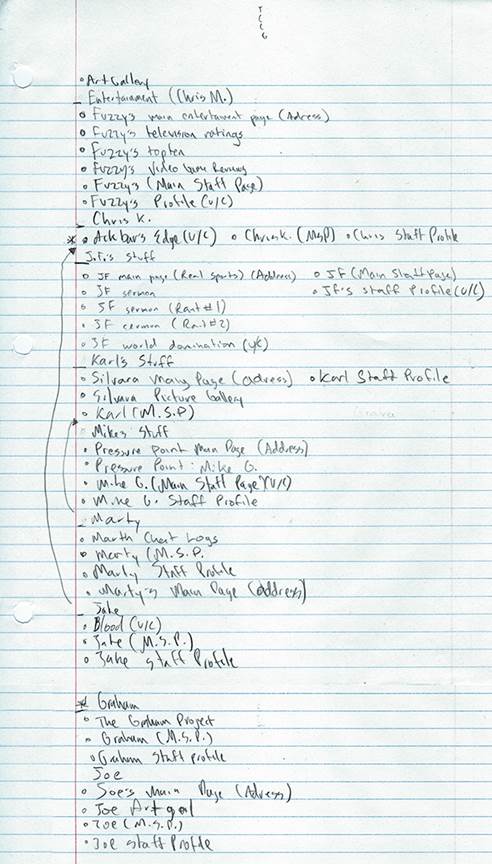 T
C
C
G
Art Gallery
Entertainment (Chris M.)
Fuzzy's main entertaiment page (Adress)
Fuzzy's television ratings
Fuzzy's topten
Fuzzy's video Game Reviews
Fuzzy's (Main Staff Page)
Fuzzy's Profile (U/C)
Chris K.
* Ackbar's Edge (U/C) Chris K. (MSP) Chris Staff Profile
J.F.'s Stuff
JF main page (Real sports) (Address) JF (Main Staff Page)
JF sermon JF's staff Profile (U/C)
JF sermon (Rant #1)
JF cermon (Rant #2)
JF world domination (U/C)
Karl's Stuff
Silvara Page (address) Karl Staff Profile
Silvara Picture Gallery
Karl (M.S.P)
Mikes Stuff
Pressure point Main Page (Address)
Pressure Point: Mike G.
Mike G. (Main Staff Page) (U/C)
Mike G. Staff Profile
Marty
Chat Logs
Marty (M.S.P.
Marty Staff Profile
Marty's Main Page (address)
Jake
Blood (U/C)
Jake (M.S.P.)
Jake staff Profile
* Graham
The Graham Project
Graham (M.S.P.)
Graham Staff profile
Joe
Joe's Main Page (Adress)
Joe Art gal
Joe (M.S.P.)
Joe staff Profile